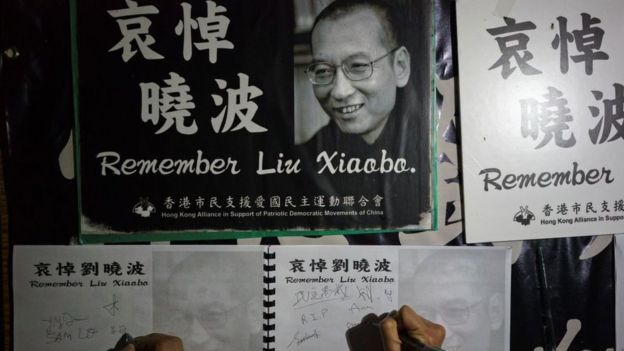 哀悼
曉波
Remember Liu Xiaobo.
香港市民支援愛國民主運動聯合會
Hong Kong Alliance in Support of Patriotic Democratic Movements of China
哀悼
曉波
Remember
香港市民支援
Hong Kong Alliance in Support of
哀悼劉曉波
Remember Liu Xiaobo
SAM
哀悼劉曉波
Remember Liu Xiaobo
R.I.P